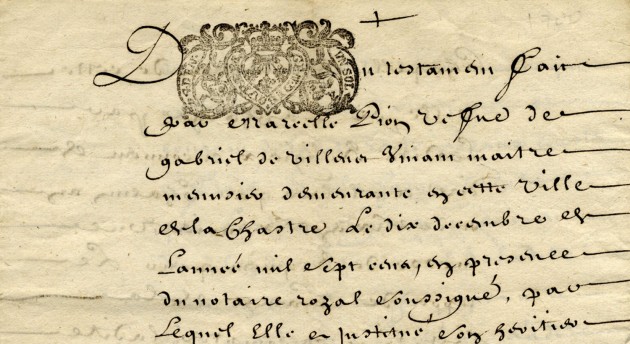 Dun testament fait
par Marcelle Pion vefve de
gabriel de villenet vivant maitre
menusier demeurante en cette ville
de la Chastre Le dix decembre de
Lanneé mil sept cens, en presence
du notaire royal soussigné, par
Lequel Elle a Jnstitué son heritier